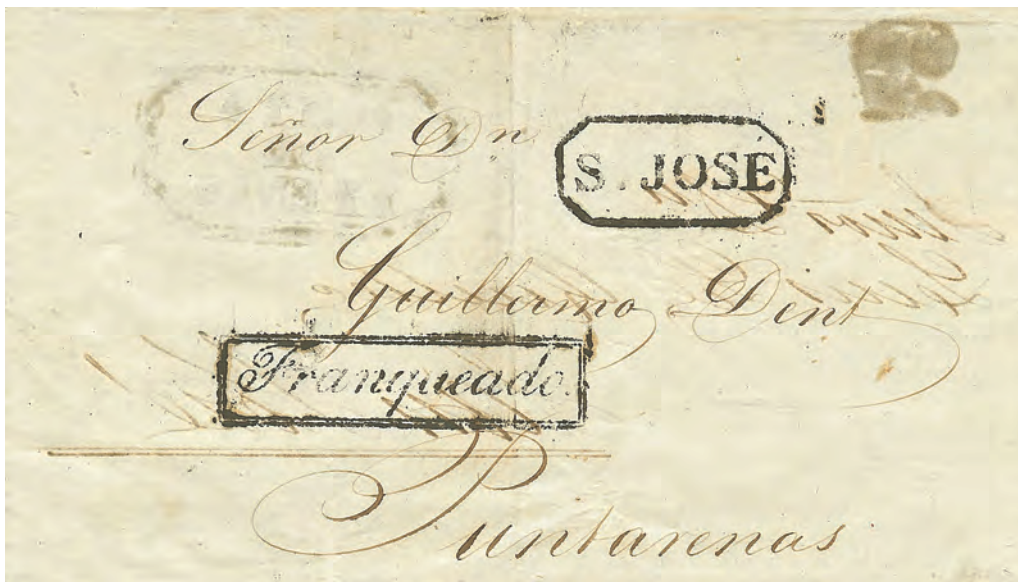 Señor Dn
S. JOSE
Guillermo Dent
Franqueado.
Puntarenas